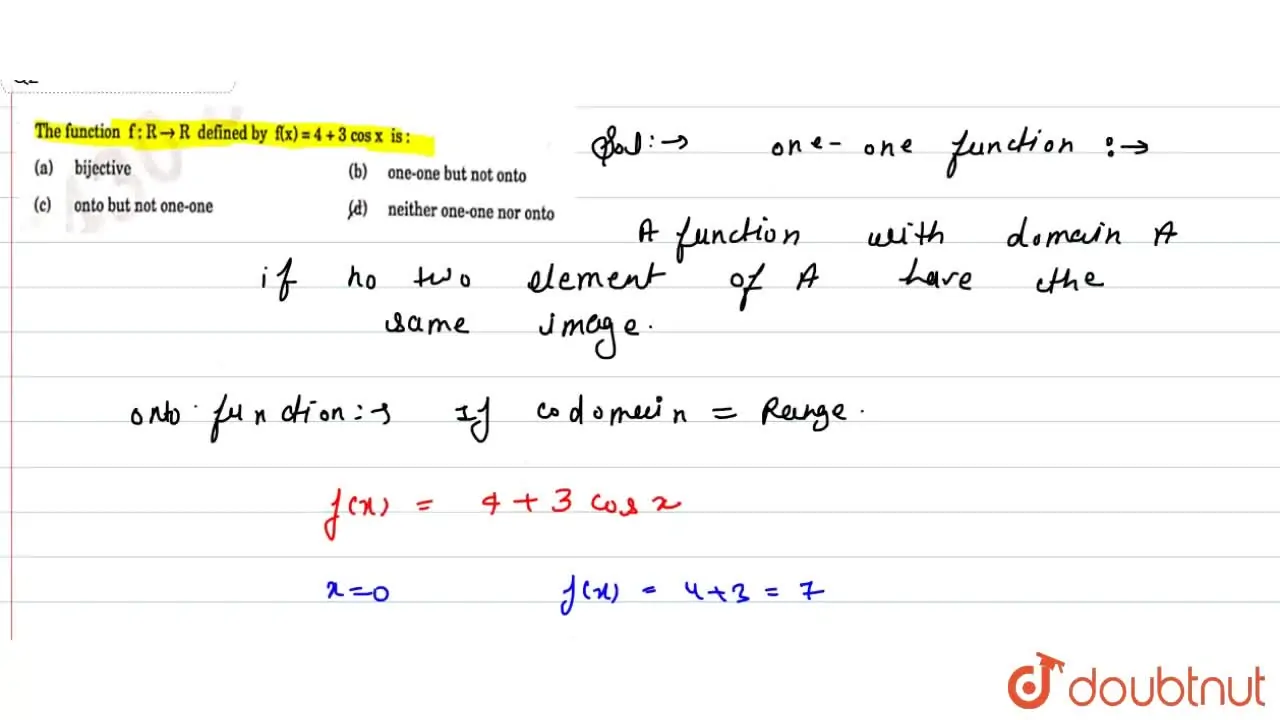 The function f : R → R defined by f(x) = 4 + 3 cos x is :
(a) bijective (b) one-one but not onto
(c) onto but not one-one (d) neither one-one nor onto
Sol :→ one-one function :→
A function with domain A
if no two element of A have the
same image.
onto function :→ If codomain = Range.
f(x) = 4 + 3 cos x
x = 0 f(x) = 4+3 = 7
doubtnut